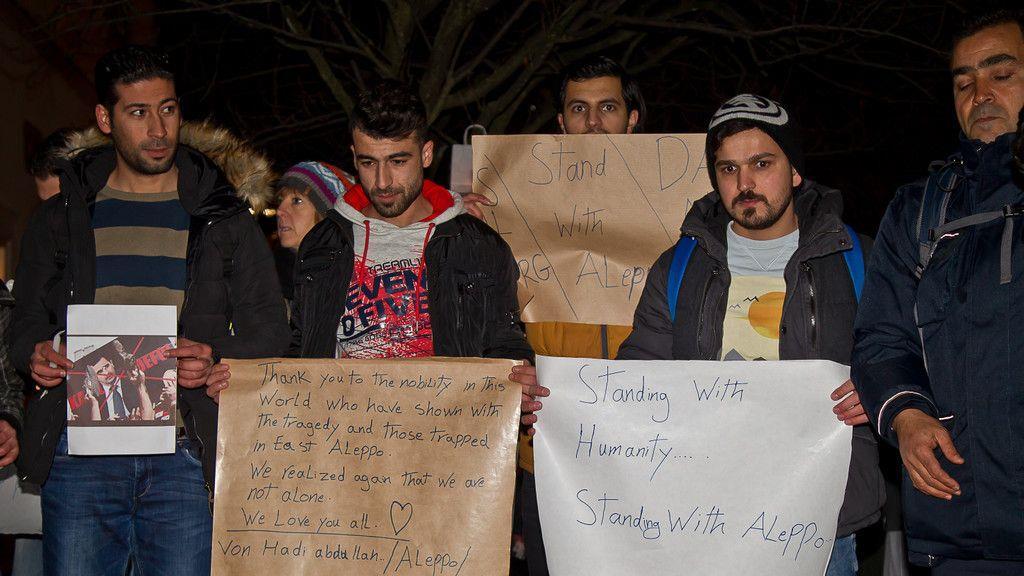 Stand
With
ALepp
DA
RG
STREAMLI
EVEN
O FIVE
Thank you to the nobility in this
World who have shown with
the tragedy and those trapped
in East ALeppo.
We realized again that we are
not alone.
We Love you all. ♡
Von Hadi abdullah. /ALeppo/
Standing With
Humanity.....
Standing With ALeppo.